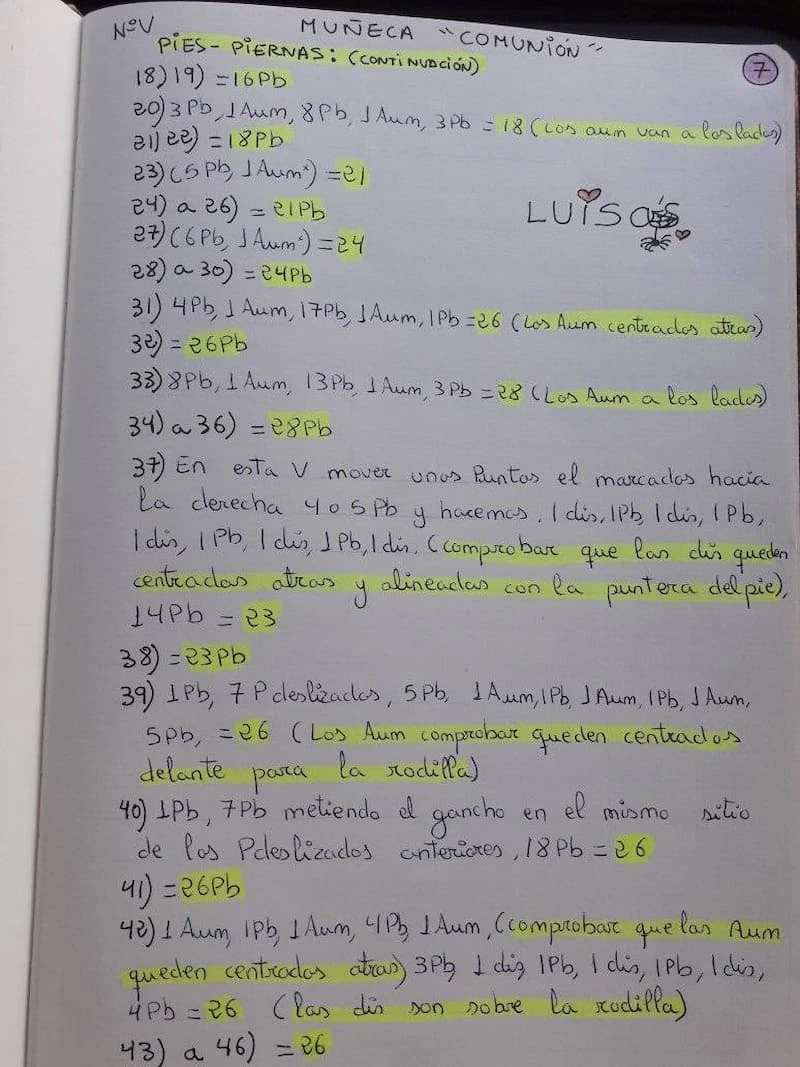 NºV MUÑECA "COMUNIÓN"
7
PIES-PIERNAS: (CONTINUACIÓN)
18)19) =16Pb
20)3Pb, 1Aum, 8Pb, 1Aum, 3Pb = 18 (Los aum van a los lados)
21)22) = 18Pb
23)(5Pb, 1Aum²) =21
24) a 26) = 21Pb
27)(6Pb, 1Aum²) = 24
28) a 30) = 24Pb
LUISA'S
31) 4Pb, 1Aum, 17Pb, 1Aum, 1Pb =26 (Los Aum centrados atras)
32) = 26Pb
33)8Pb, 1Aum, 13Pb, 1Aum, 3Pb =28 (Los Aum a los lados)
34) a 36) = 28Pb
37) En esta V mover unos Puntos el marcados hacia
la derecha 4 o 5Pb y hacemos, 1dis, 1Pb, 1dis, 1Pb,
1dis, 1Pb, 1dis, 1Pb, 1dis. (comprobar que las dis queden
centradas atras y alineadas con la puntera del pie),
14Pb = 23
38) =23Pb
39) 1Pb, 7 Pdeslizados, 5Pb, 1Aum, 1Pb, 1Aum, 1Pb, 1Aum,
5Pb, =26 (Los Aum comprobar queden centrados
delante para la rodilla)
40) 1Pb, 7Pb metiendo el gancho en el mismo sitio
de los Pdeslizados anteriores, 18Pb = 26
41) =26Pb
42) 1Aum, 1Pb, 1Aum, 4Pb, 1Aum, (comprobar que las Aum
queden centrados atras) 3Pb, 1dis, 1Pb, 1dis, 1Pb, 1dis,
4Pb = 26 (las dis son sobre la rodilla)
43) a 46) = 26